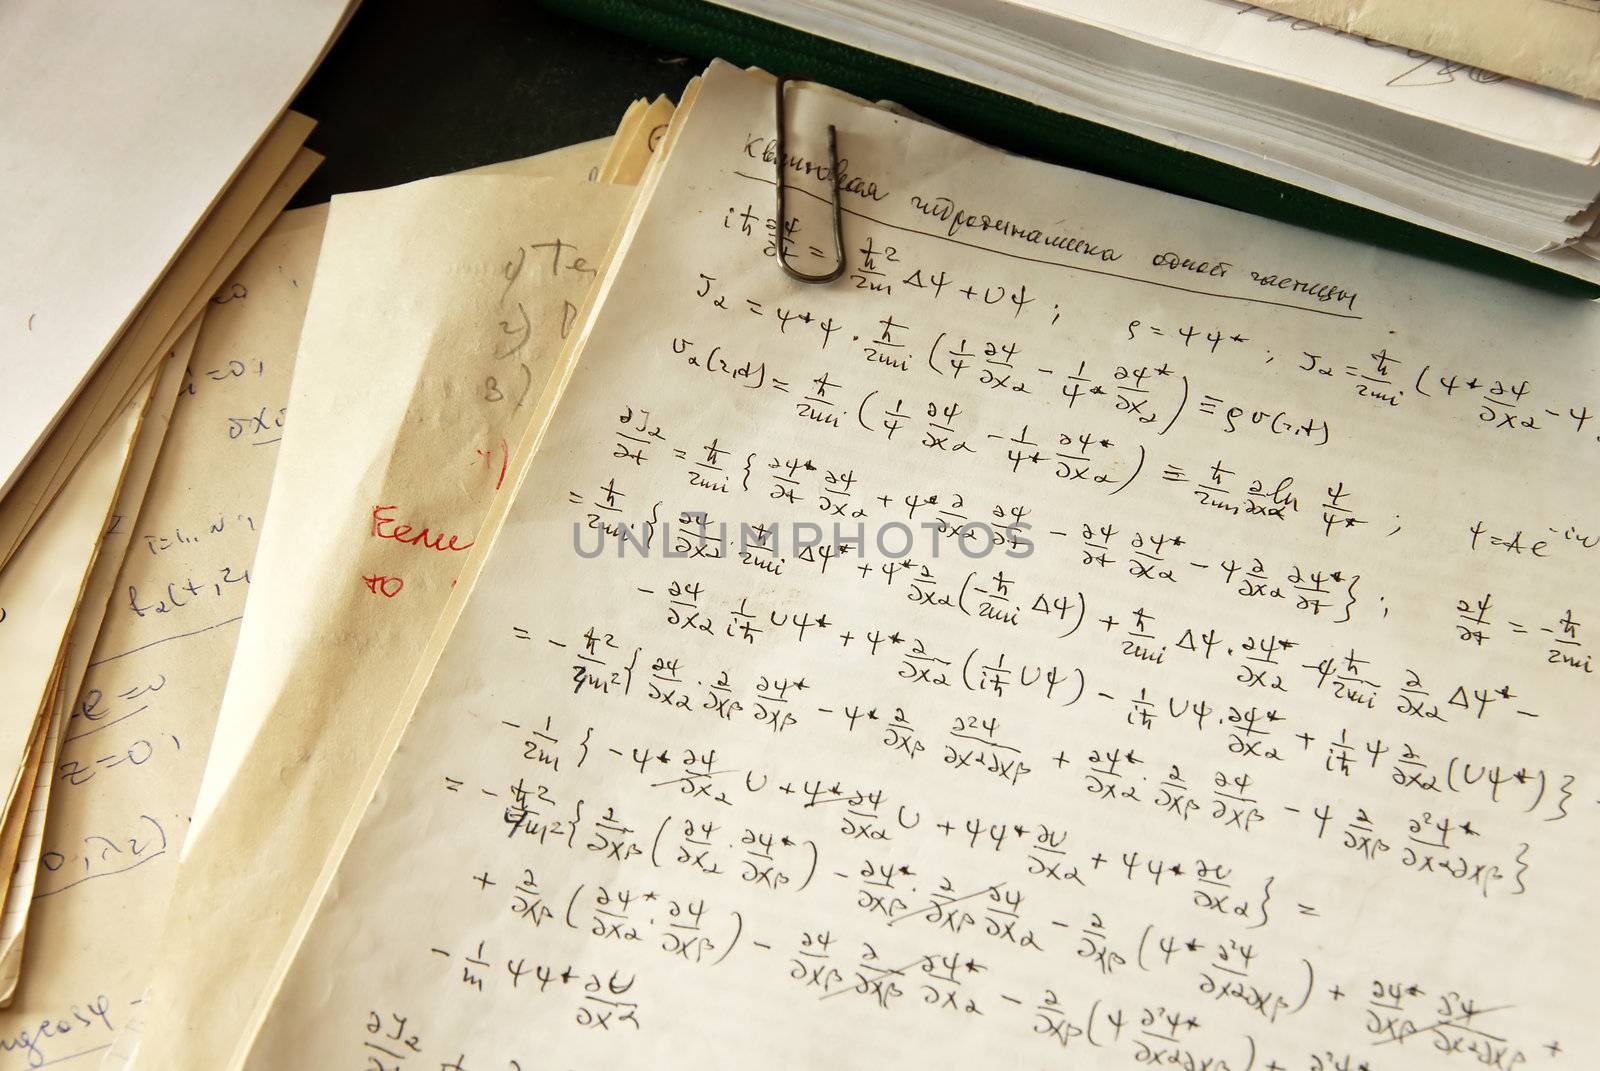 Квантовая гидродинамика одной частицы
iħ ∂ψ/∂t = ħ²/2m Δψ + Uψ ; ρ = ψψ* ; J_α = ħ/2mi (ψ* ∂ψ/∂x_α − ψ
J_α = ψ*ψ · ħ/2mi (1/ψ ∂ψ/∂x_α − 1/ψ* ∂ψ*/∂x_α) ≡ ρ v(r,t)
v_α(r,t) = ħ/2mi (1/ψ ∂ψ/∂x_α − 1/ψ* ∂ψ*/∂x_α) ≡ ħ/2mi ∂/∂x_α ln ψ/ψ* ; ψ = A e^-iω
∂J_α/∂t = ħ/2mi { ∂ψ*/∂t ∂ψ/∂x_α + ψ* ∂/∂x_α ∂ψ/∂t − ∂ψ/∂t ∂ψ*/∂x_α − ψ ∂/∂x_α ∂ψ*/∂t } ; ∂ψ/∂t = −ħ/2mi
= ħ/2mi { ∂ψ/∂x_α · ħ/2mi Δψ* + ψ* ∂/∂x_α (−ħ/2mi Δψ) + ħ/2mi Δψ · ∂ψ*/∂x_α − ψ ħ/2mi ∂/∂x_α Δψ* −
− ∂ψ/∂x_α 1/iħ Uψ* + ψ* ∂/∂x_α (1/iħ Uψ) − 1/iħ Uψ · ∂ψ*/∂x_α + 1/iħ ψ ∂/∂x_α (Uψ*) }
= − ħ²/4m² { ∂ψ/∂x_α · ∂/∂x_β ∂ψ*/∂x_β − ψ* ∂/∂x_β ∂²ψ/∂x_α∂x_β + ∂ψ*/∂x_α · ∂/∂x_β ∂ψ/∂x_β − ψ ∂/∂x_β ∂²ψ*/∂x_α∂x_β }
− 1/2m } − ψ* ∂ψ/∂x_α U + ψ* ∂ψ/∂x_α U + ψψ* ∂U/∂x_α + ψψ* ∂U/∂x_α } =
= − ħ²/4m² { ∂/∂x_β (∂ψ/∂x_α · ∂ψ*/∂x_β) − ∂ψ*/∂x_β · ∂/∂x_β ∂ψ/∂x_α − ∂/∂x_β (ψ* ∂²ψ/∂x_α∂x_β) + ∂ψ*/∂x_β ∂²ψ/∂x_α∂x_β +
+ ∂/∂x_β (∂ψ*/∂x_α · ∂ψ/∂x_β) − ∂ψ/∂x_β ∂/∂x_β ∂ψ*/∂x_α − ∂/∂x_β (ψ ∂²ψ*/∂x_α∂x_β) +
− 1/m ψψ* ∂U/∂x_α
∂J_α
1) Те
2)
3)
4)
Если
то
i=0;
∂x
i=1..N
z=0;
UNLIMPHOTOS